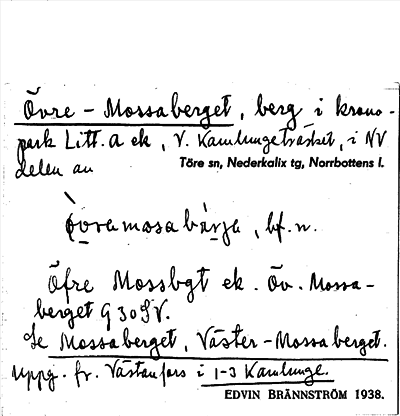 Övre - Mossaberget, berg i krono-
park Litt. a ek, V. Kamlungeträsket, i NV
delen av Töre sn, Nederkalix tg, Norrbottens l.
mosa , bf. n.
Öfre Mossbgt ek. Öv. Mossa-
berget 9 30 SV.
Se Mossaberget, Väster-Mossaberget.
Uppg. fr. Västanfors i 1-3 Kamlunge.
EDVIN BRÄNNSTRÖM 1938.